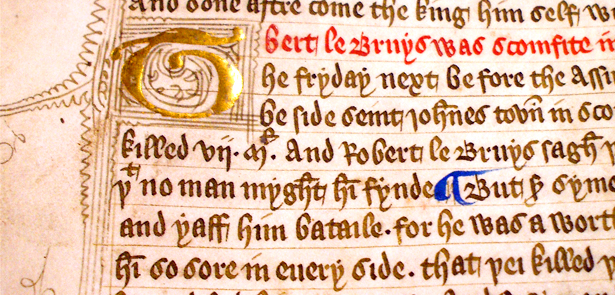 And done aftre come the king him self w
bert le Bruys was scomfite in
The fryday next before the assi
be side seint Johnes tovn in sco
killed vij. Mˡ. And Robert le Bruys sagh
yᵗ no man myght hī fynde ¶ But sir syme
and yaff him bataile. for he was a wort
hī so sore in euery side. that þei killed